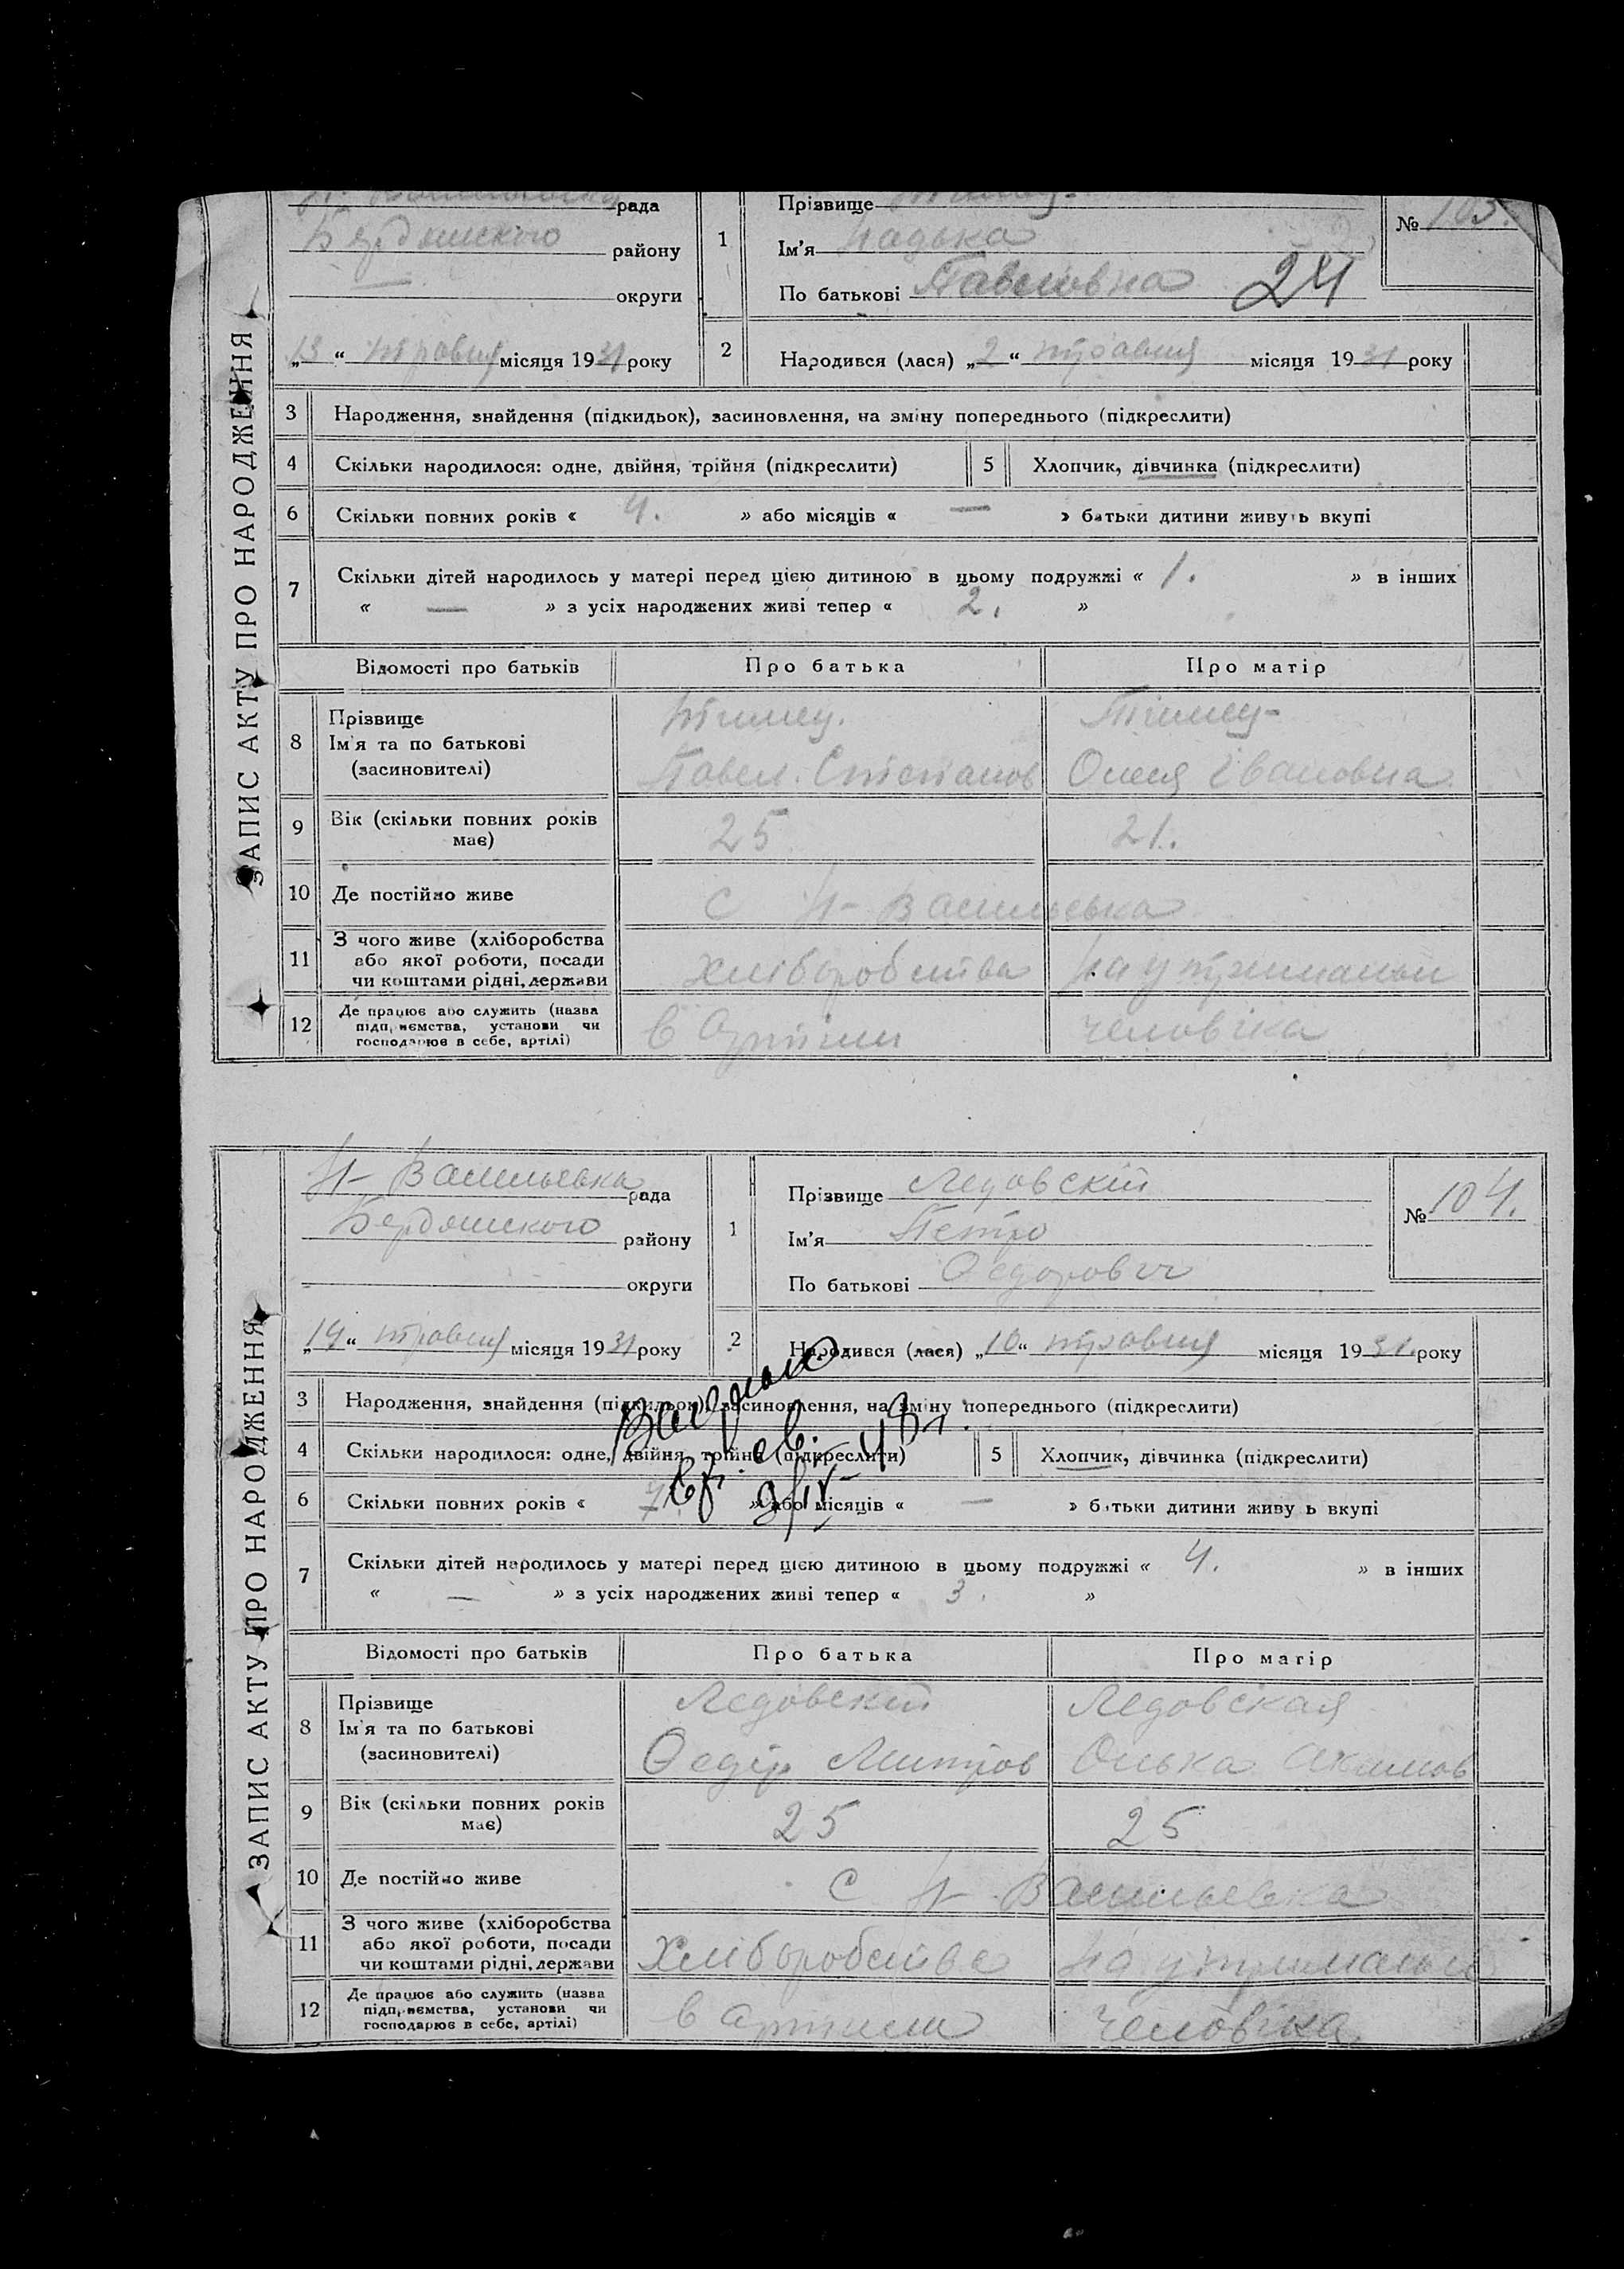 ЗАПИС АКТУ ПРО НАРОДЖЕННЯ
рада
Бердянського району
округи
„13“ травня місяця 1931 року
1
Прізвище
Ім'я Надька
По батькові Павловна
24
№ 103.
2
Народився (лася) „2“ травня місяця 1931 року
3 Народження, знайдення (підкидьок), засиновлення, на зміну попереднього (підкреслити)
4 Скільки народилося: одне, двійня, трійня (підкреслити) 5 Хлопчик, дівчинка (підкреслити)
6 Скільки повних років « 4. » або місяців « — » батьки дитини живуть вкупі
7 Скільки дітей народилось у матері перед цією дитиною в цьому подружжі « 1. » в інших
« — » з усіх народжених живі тепер « 2. »
Відомості про батьків Про батька Про матір
8 Прізвище
Ім'я та по батькові
(засиновителі)
Павел. Степанов
Ивановна
9 Вік (скільки повних років має) 25 21.
10 Де постійно живе с Н-Васильевка
11 З чого живе (хліборобства або якої роботи, посади чи коштами рідні, держави Хліборобства На утриманьи
12 Де працює або служить (назва підприємства, установи чи господарює в себе, артілі) в Артіли человіка
ЗАПИС АКТУ ПРО НАРОДЖЕННЯ
Н-Васильевка рада
Бердянського району
округи
„14“ травня місяця 1931 року
1
Прізвище Ледовский
Ім'я Петро
По батькові Федорович
№ 104.
2
Народився (лася) „10“ травня місяця 1931. року
3 Народження, знайдення (підкидьок), засиновлення, на зміну попереднього (підкреслити)
4 Скільки народилося: одне, двійня, трійня (підкреслити) 5 Хлопчик, дівчинка (підкреслити)
6 Скільки повних років « 7. » або місяців « — » батьки дитини живу ь вкупі
7 Скільки дітей народилось у матері перед цією дитиною в цьому подружжі « 4. » в інших
« — » з усіх народжених живі тепер « 3. »
Відомості про батьків Про батька Про матір
8 Прізвище
Ім'я та по батькові
(засиновителі)
Ледовский
Федір Митров
Ледовская
Олька Акимов
9 Вік (скільки повних років має) 25 25
10 Де постійно живе с Н-Васильевка
11 З чого живе (хліборобства або якої роботи, посади чи коштами рідні, держави Хліборобства На утриманьи
12 Де працює або служить (назва підприємства, установи чи господарює в себе, артілі) в артили человіка